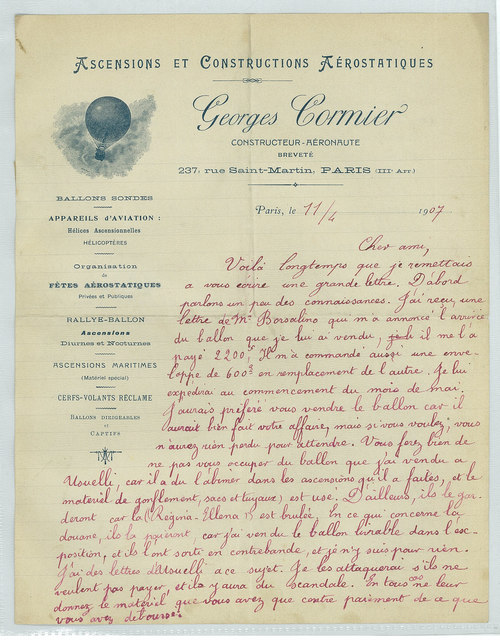 ASCENSIONS ET CONSTRUCTIONS AÉROSTATIQUES
Georges Cormier
CONSTRUCTEUR-AÉRONAUTE
BREVETÉ
237, rue Saint-Martin, PARIS (IIIe Arr)
Paris, le 11/4 1907
BALLONS SONDES
APPAREILS D'AVIATION :
Hélices Ascensionnelles
HÉLICOPTÈRES
Organisation
de
FÊTES AÉROSTATIQUES
Privées et Publiques
RALLYE-BALLON
Ascensions
Diurnes et Nocturnes
ASCENSIONS MARITIMES
(Matériel spécial)
CERFS-VOLANTS RÉCLAME
BALLONS DIRIGEABLES
ET
CAPTIFS
Cher ami,
Voilà longtemps que je remettais
a vous écrire une grande lettre. D'abord
parlons un peu des connaissances. J'ai reçu une
lettre de Mr Borsalino qui m'a annoncé l'arrivée
du ballon que je lui ai vendu, il me l'a
payé 2200, Il m'a commandé aussi une enve-
loppe de 600 3 en remplacement de l'autre. Je lui
expedirai au commencement du mois de mai.
J'aurais préféré vous vendre le ballon car il
aurait bien fait votre affaire, mais si vous voulez, vous
n'aurez rien perdu pour attendre. Vous ferez bien de
ne pas vous occuper du ballon que j'ai vendu a
Usuelli, car il a du l'abimer dans les ascensions qu'il a faites, et le
matériel de gonflement, sacs et tuyaux) est usé. D'ailleurs, ils le gar-
deront car la (Regina-Ellena) est brulée. En ce qui concerne la
douane, ils la paieront, car j'ai vendu le ballon livrable dans l'ex-
position, et ils l'ont sorti en contrebande, et je n'y suis pour rien.
J'ai des lettres d'Usuelli a ce sujet. Je les attaquerai s'ils ne
veulent pas payer, et il y aura du scandale. En tous cas ne leur
donnez le matériel que vous avez que contre paiement de ce que
vous avez déboursé.